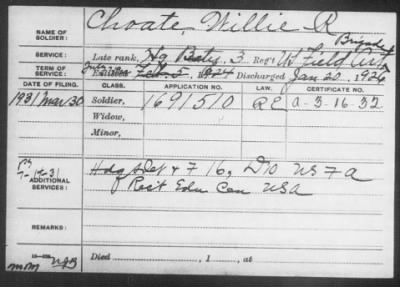 Choate, Willie R
NAME OF SOLDIER:
Brigade
SERVICE: Late rank, Hq Batry, 3 Reg't US Field Arty
TERM OF SERVICE: Enlisted Feb 5, 1924 Discharged Jan 20, 1926
DATE OF FILING. CLASS. APPLICATION NO. LAW. CERTIFICATE NO.
1931 Mar 30 Soldier, 1691510 a-3-16-32
Widow,
Minor,
7-14-31
ADDITIONAL SERVICES: Hdq Det & F 16, US F A
Rect Edn Cen USA
REMARKS:
Died , 1 , at